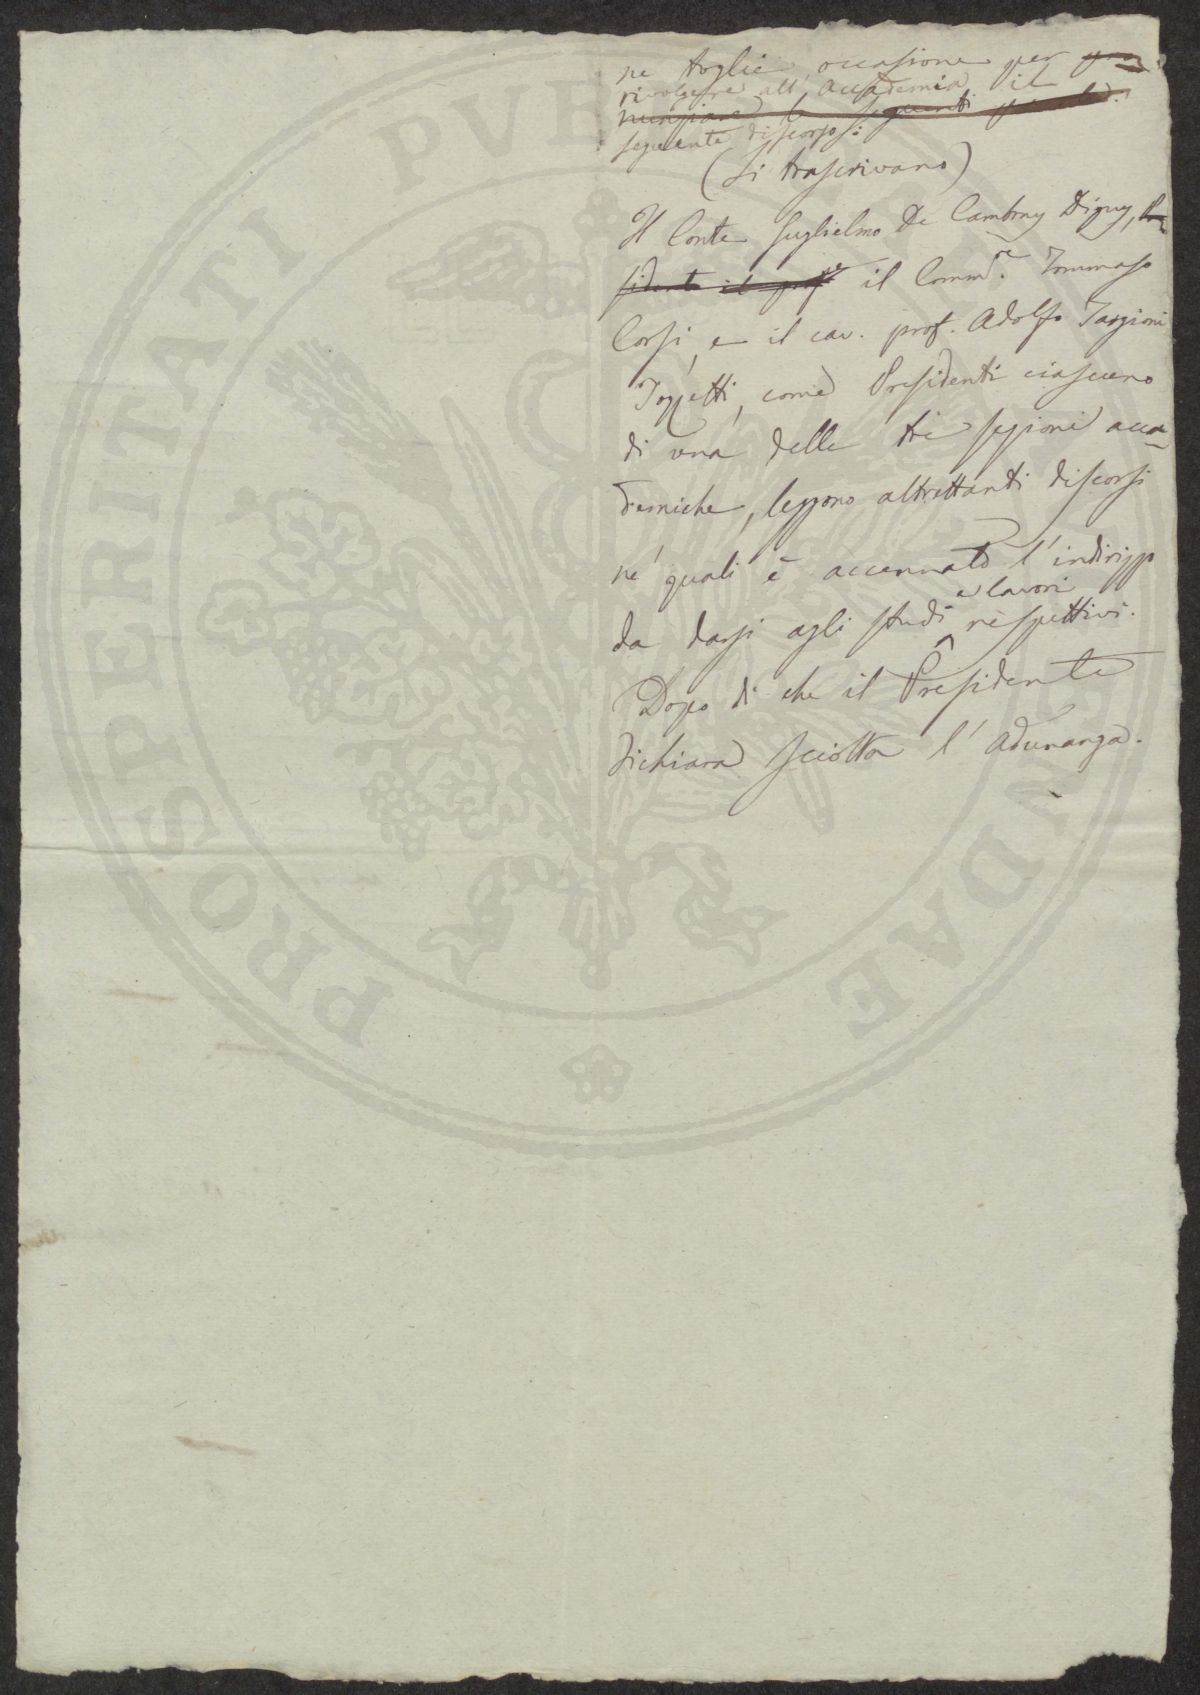 ne toglie occasione per pro-
rivolgere all'Accademia il
nunziare le seguenti parole:
seguente discorso:
(Si trascrivano)
Il Conte Guglielmo De Cambray Digny, Pre-
sidente il prof.e il Commd.re Tommaso
Corsi, e il cav. prof. Adolfo Targioni
Tozzetti, come Presidenti ciascuno
di una delle tre sezioni acca-
demiche, leggono altrettanti discorsi
ne' quali è accennato l'indirizzo
e lavori
da darsi agli studi ^ respettivi.
Dopo di che il Presidente
dichiara sciolta l'Adunanza.
PROSPERITATI PVB AVGENDAE